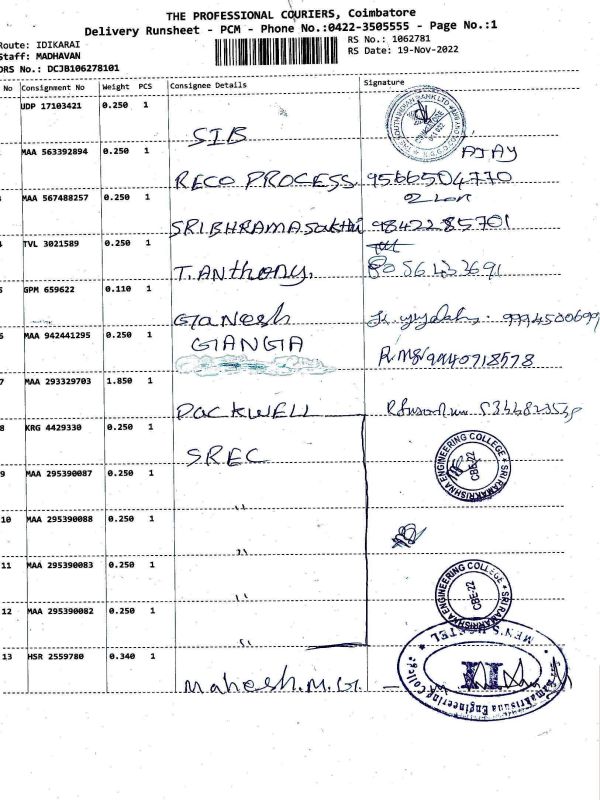 THE PROFESSIONAL COURIERS, Coimbatore
Delivery Runsheet - PCM - Phone No.:0422-3505555 - Page No.:1
Route: IDIKARAI RS No.: 1062781
Staff: MADHAVAN RS Date: 19-Nov-2022
DRS No.: DCJB106278101
No Consignment No Weight PCS Consignee Details Signature
UDP 17103421 0.250 1 SIB
MAA 563392894 0.250 1 RECO PROCESS AJAY 9566504770
MAA 567488257 0.250 1 SRIBHRAMASakthi 9842285701
TVL 3021589 0.250 1 T.ANthony.
GPM 659622 0.110 1 GaNesh
MAA 942441295 0.250 1 GANGA 9940718578
MAA 293329703 1.850 1 PACKWELL
8 KRG 4429330 0.250 1 SREC
SRI RAMAKRISHNA ENGINEERING COLLEGE CBE-22
9 MAA 295390087 0.250 1 "
10 MAA 295390088 0.250 1 "
11 MAA 295390083 0.250 1 "
SRI RAMAKRISHNA ENGINEERING COLLEGE CBE-22
12 MAA 295390082 0.250 1 "
13 HSR 2559780 0.340 1 Mahesh.M.G.
MEN'S HOSTEL